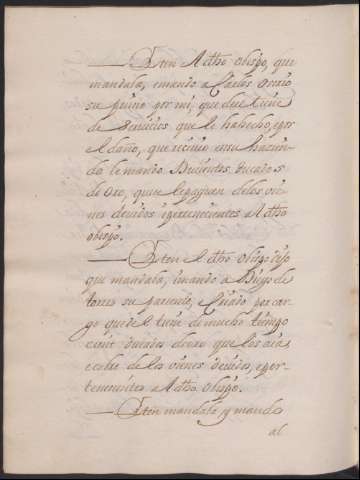 Iten el dho obispo, que
mandaba, emando a Carlos
su primo por mi, que del tiene
de servicios que le ha hecho, e por
el daño, que recivio en su hazien
da le mando Ducientos ducados
de oro, que se le paguen de los vie
nes devidos i pertenecientes a el dho
obispo.
Iten el dho obispo dijo
que mandaba, emando a Diego de
torres su pariente, e criado por car
go que del tiene de mucho tiempo
cient ducados de oro que los aia
e cobre de los vienes devidos, e per
tenecientes a el dho obispo.
Iten mandaba y mando
al